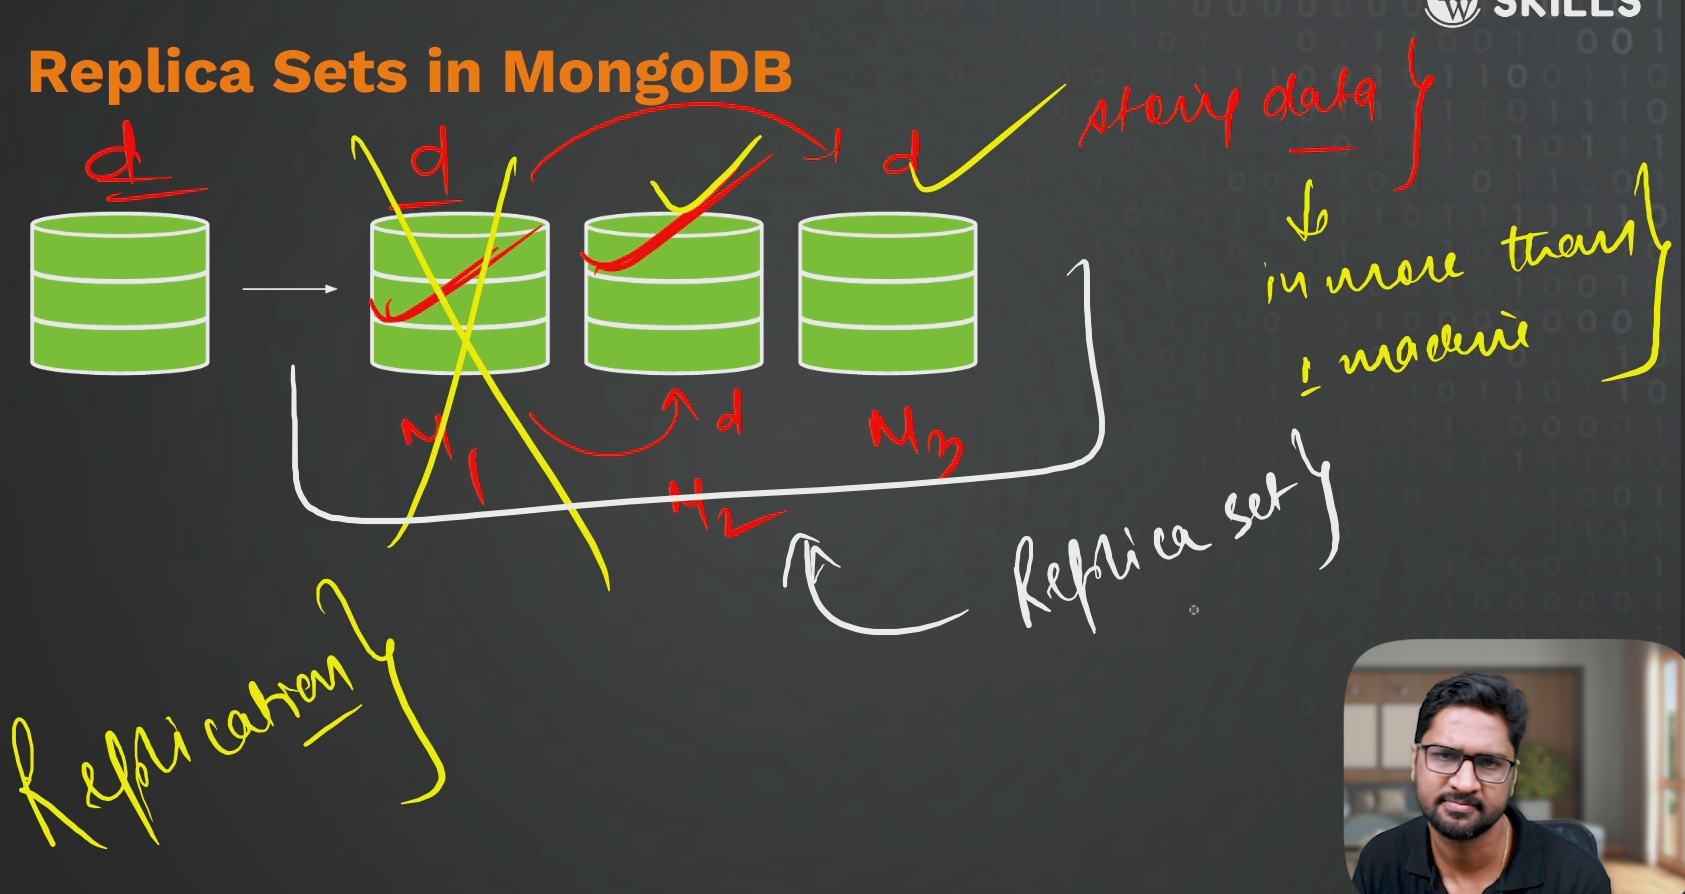 SKILLS
Replica Sets in MongoDB
d
d
d
storing data
in more than
1 machine
d
M1
M2
M3
Replica set
Replication